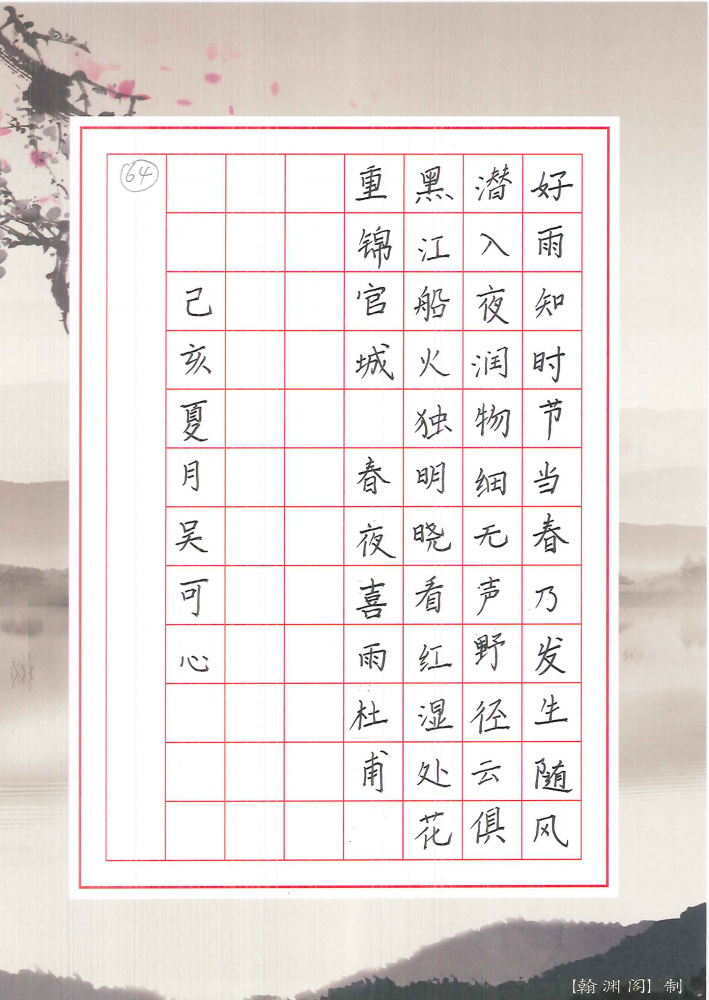 好雨知时节当春乃发生随风
潜入夜润物细无声野径云俱
黑江船火独明晓看红湿处花
重锦官城 春夜喜雨杜甫
己亥夏月吴可心
64
【翰渊阁】制